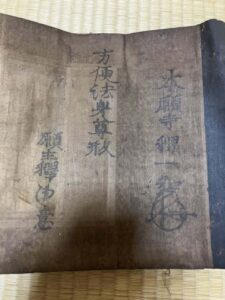 本願寺釋一如
方便法身尊形
願主釋